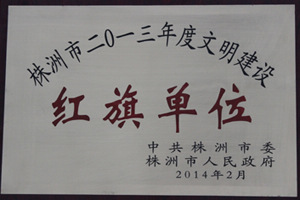 株洲市二〇一三年度文明建设
红旗单位
中共株洲市委
株洲市人民政府
2014年2月